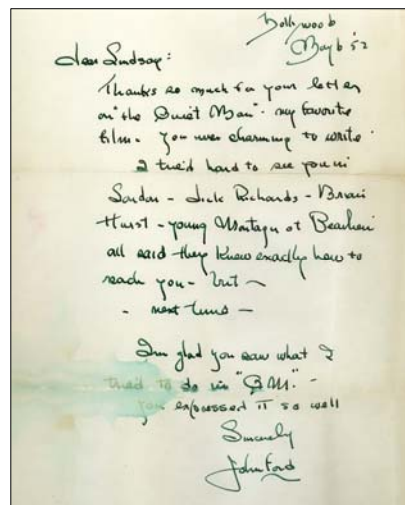 Hollywood
May 6 '52
dear Lindsay:
Thanks so much for your letter
on "the Quiet Man". my favorite
film - You were charming to write
I tried hard to see you in
London - Dick Richards - Brian
Hurst - young Montagu of Beaulieu
all said they knew exactly how to
reach you - but -
- next time -
I'm glad you saw what I
tried to do in "Q.M." -
you expressed it so well
Sincerely
John Ford